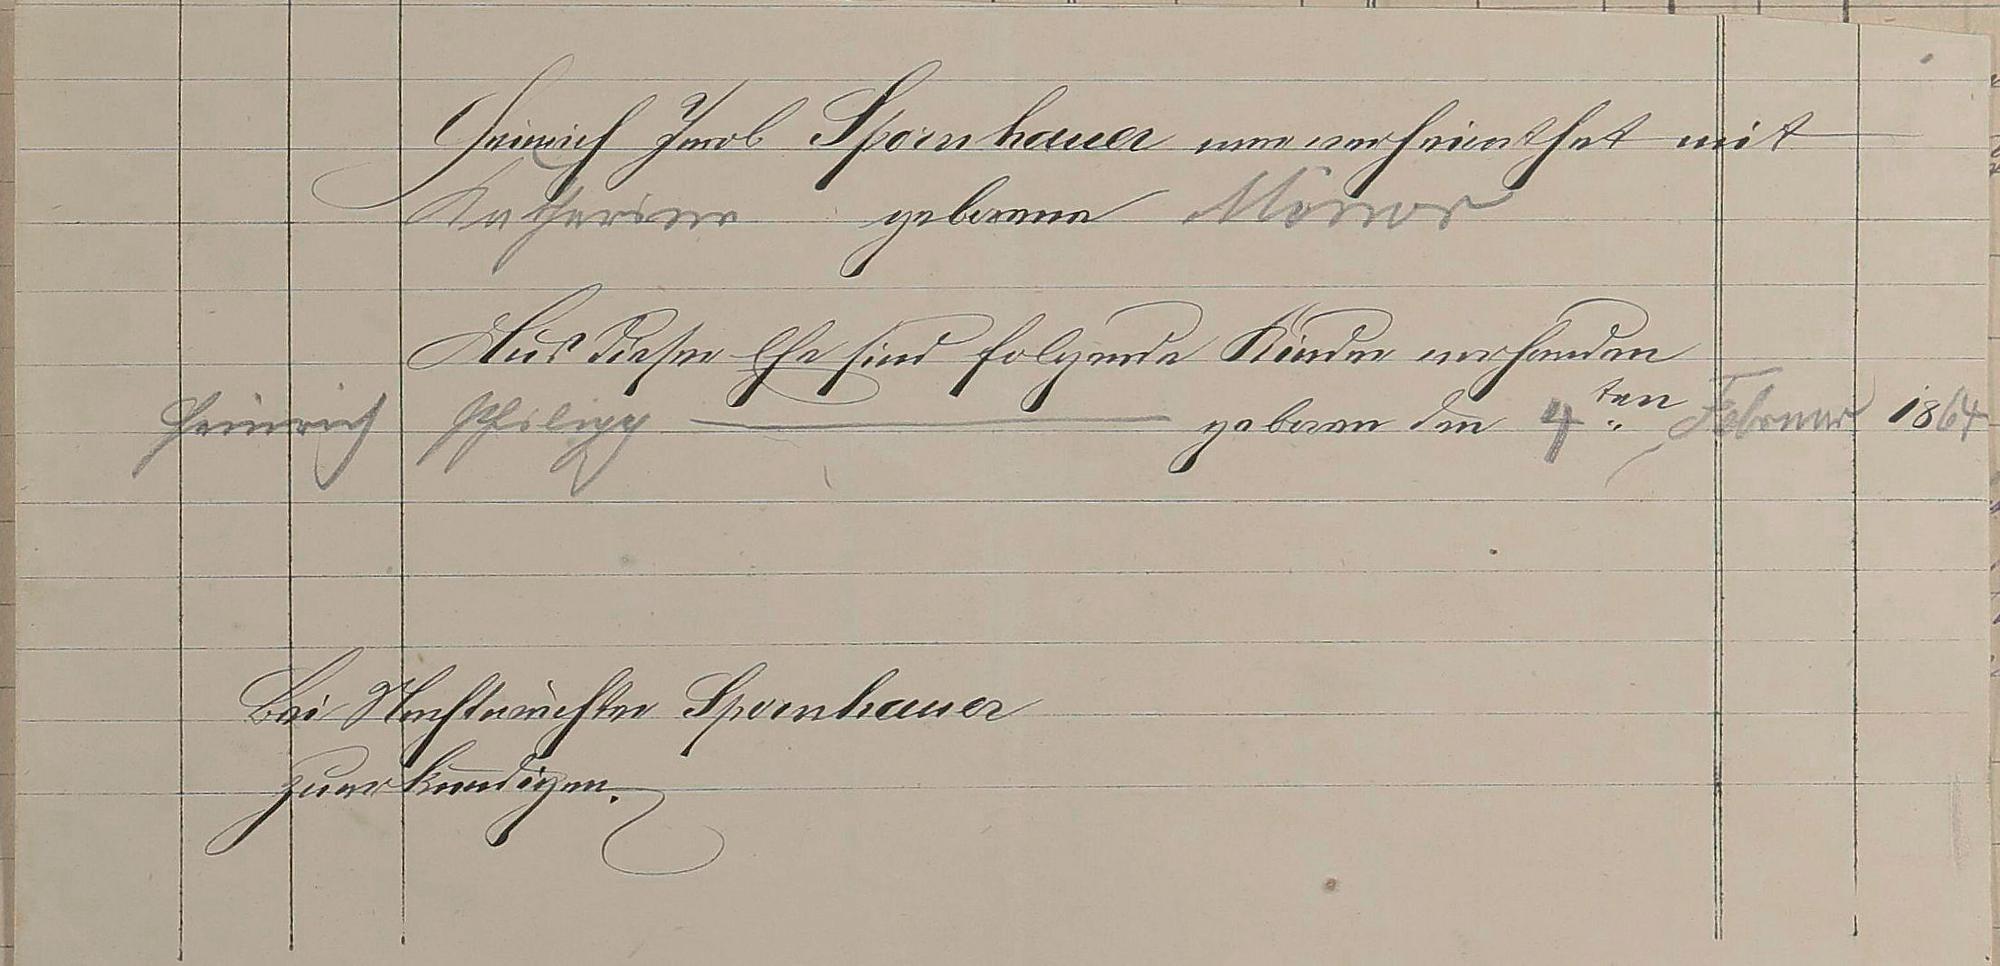 Heinrich Jacob Spornhauer war verheirathet mit
Katharina geborene
Aus dieser Ehe sind folgende Kinder vorhanden
Heinrich Philipp geboren den 4ten Februar 1864
Bei Nachtwächter Spornhauer
zu erkundigen.